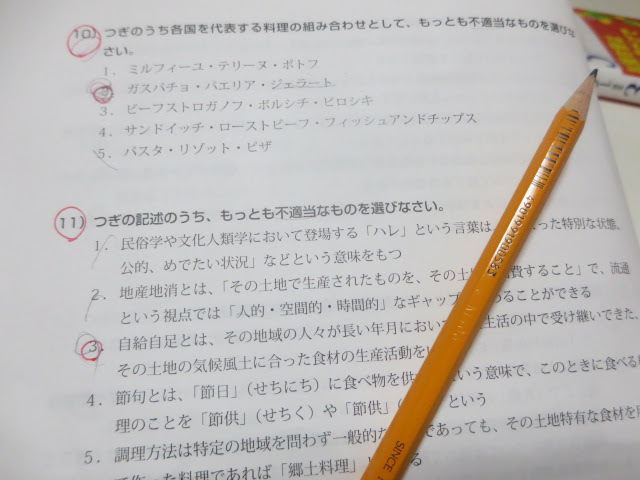 10) つぎのうち各国を代表する料理の組み合わせとして、もっとも不適当なものを選びな
さい。
1. ミルフィーユ・テリーヌ・ポトフ
2. ガスパチョ・パエリア・ジェラート
3. ビーフストロガノフ・ボルシチ・ピロシキ
4. サンドイッチ・ローストビーフ・フィッシュアンドチップス
5. パスタ・リゾット・ピザ
11) つぎの記述のうち、もっとも不適当なものを選びなさい。
1. 民俗学や文化人類学において登場する「ハレ」という言葉は、 った特別な状態、
公的、めでたい状況」などという意味をもつ
2. 地産地消とは、「その土地で生産されたものを、その土 費すること」で、流通
という視点では「人的・空間的・時間的」なギャップ めることができる
3. 自給自足とは、その地域の人々が長い年月におい 生活の中で受け継いできた、
その土地の気候風土に合った食材の生産活動を
4. 節句とは、「節日」(せちにち)に食べ物を供 いう意味で、このときに食べる
理のことを「節供」(せちく)や「節供」( という
5. 調理方法は特定の地域を問わず一般的 であっても、その土地特有な食材を
った料理であれば「郷土料理」 る
4901991900563
SINCE